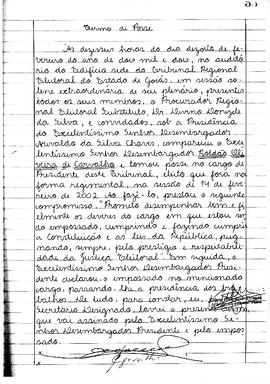 Termo de Posse
Às dezesseis horas do dia dezoito de fe-
vereiro do ano de dois mil e dois, no auditó-
rio do Edifício sede do Tribunal Regional
Eleitoral do Estado de Goiás, em sessão so-
lene extraordinária de seu plenário, presentes
todos os seus membros, o Procurador Regio-
nal Eleitoral Substituto, Dr.
da Silva, e convidados, sob a Presidência
do Excelentíssimo Senhor Desembargador
da Silva Chaves, compareceu o Exce-
lentíssimo Senhor Desembargador Roldão Oli-
veira de Carvalho e tomou posse no cargo de
Presidente deste Tribunal, eleito que fora na
forma regimental, na sessão de 14 de feve-
reiro de 2002. Ao fazê-lo, prestou o seguinte
compromisso: "Prometo desempenhar bem e fi-
elmente os deveres do cargo em que estou sen-
do empossado, cumprindo e fazendo cumprir
a Constituição e as Leis da República, pug-
nando, sempre, pelo prestígio e respeitabili-
dade da Justiça Eleitoral". Em seguida, o
Excelentíssimo Senhor Desembargador Presi-
dente declarou-o empossado no mencionado
cargo, passando-lhe a presidência dos tra-
balhos. De tudo, para constar, eu,
Secretário Designado, lavrei o presente termo,
que vai assinado pelo Excelentíssimo Se-
nhor Desembargador Presidente e pelo empos-
sado.